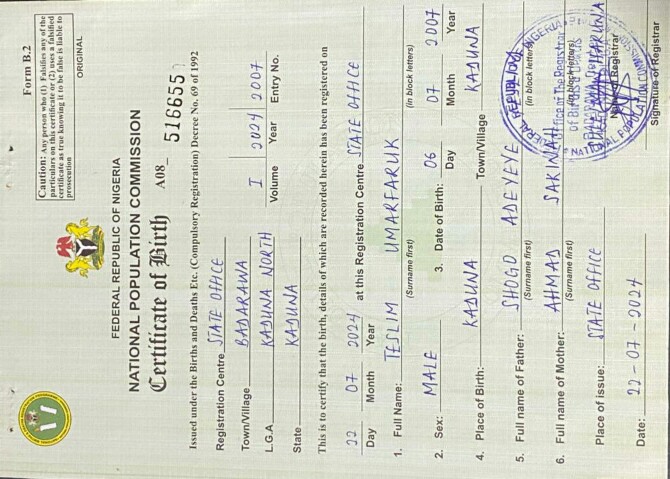 Form B.2
Caution: Any person who (1) Falsifies any of the
particulars on this certificate or (2) uses a falsified
certificate as true knowing it to be false is liable to
prosecution
ORIGINAL
FEDERAL REPUBLIC OF NIGERIA
NATIONAL POPULATION COMMISSION
Certificate of Birth A08 516655
Issued under the Births and Deaths Etc. (Compulsory Registration) Decree No. 69 of 1992
Registration Centre STATE OFFICE
Town/Village BADARAWA I 2024 2007
L.G.A KADUNA NORTH Volume Year Entry No.
State KADUNA
This is to certify that the birth, details of which are recorded herein has been registered on
22 07 2024 at this Registration Centre STATE OFFICE
Day Month Year
1. Full Name: TESLIM UMARFARUK
(Surname first) (In block letters)
2. Sex: MALE 3. Date of Birth: 06 07 2007
Day Month Year
4. Place of Birth: KADUNA Town/Village KADUNA
5. Full name of Father: SHOGO ADEYEYE
(Surname first) (In block letters)
6. Full name of Mother: AHMAD SAKINAH
(Surname first) (In block letters)
Place of issue: STATE OFFICE
Name of Registrar
Date: 22-07-2024
Signature of Registrar
FEDERAL REPUBLIC OF NIGERIA
Office of The Registrar
Of Births & Deaths
NATIONAL POPULATION COMMISSION